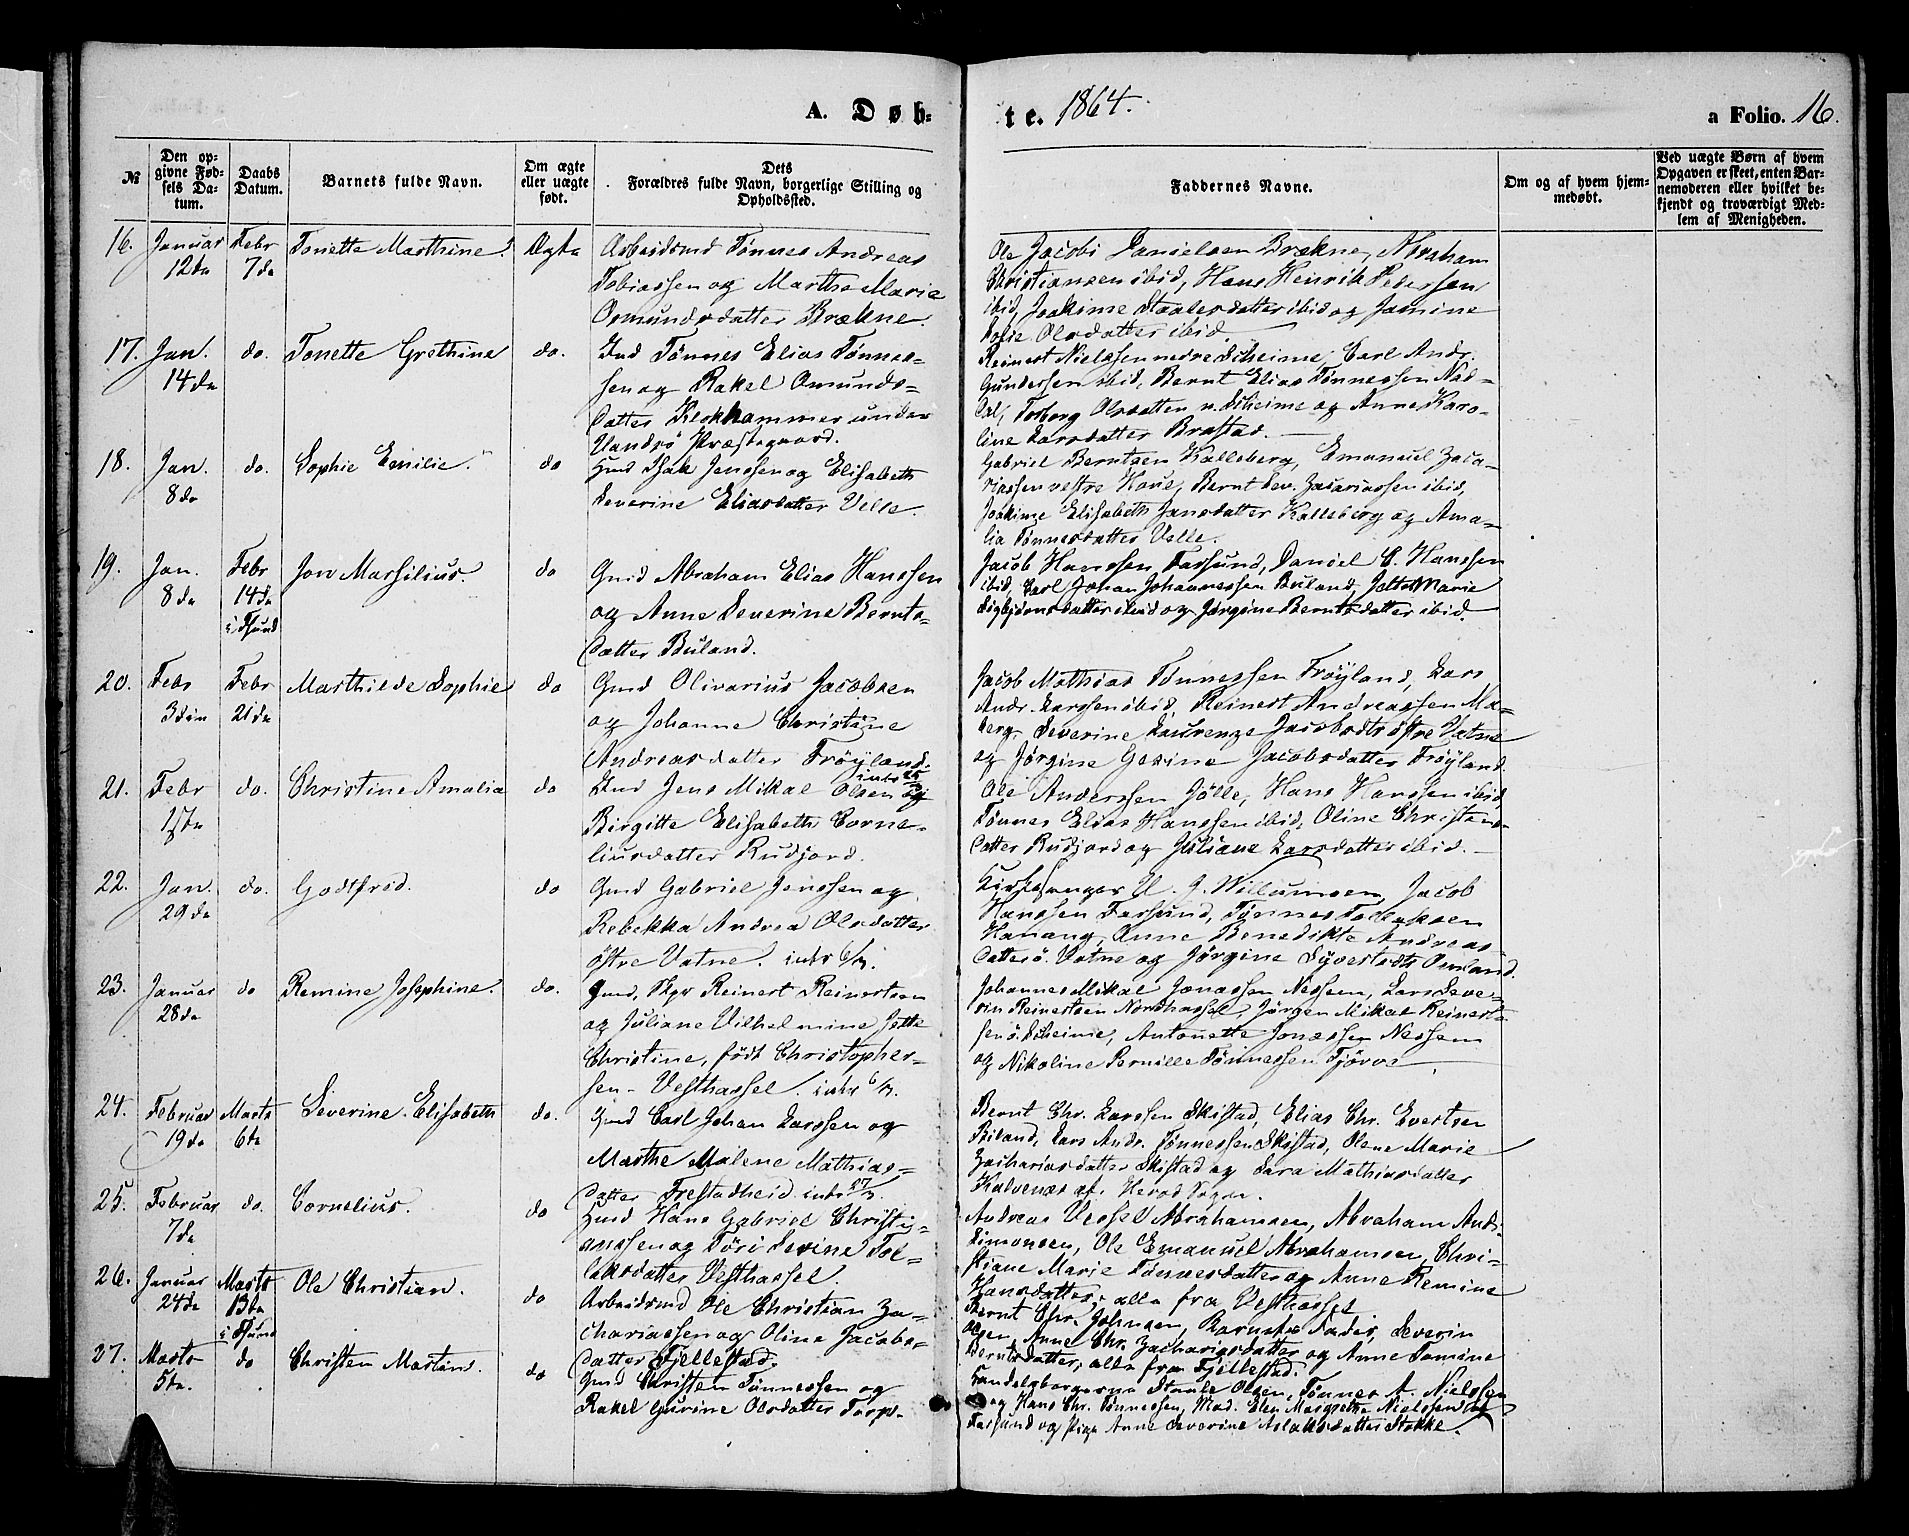 A. Døb-
te. 1864.
a Folio. 16.
№
Den op-
givne Fød-
sels Da-
tum.
Daabs
Datum.
Barnets fulde Navn.
Om ægte
eller uægte
født.
Dets
Forældres fulde Navn, borgerlige Stilling og
Opholdssted.
Faddernes Navne.
Om og af hvem hjem-
medøbt.
Ved uægte Børn af hvem
Opgaven er skeet, enten Bar-
nemoderen eller hvilket be-
kjendt og troværdigt Med-
lem af Menigheden.
16. Januar 12te Febr 7de Tonette Marthine. Ægte
Arbeidsmd Tønnes Andreas
Tobiassen og Marthe Marie
Osmundsdatter Brækne.
Ole Jacobi Danielsen Brækne, Abraham
Christiansen ibid, Hans Henrik Pedersen
ibid, Joakime Staalesdatter ibid og Jamine
Sofie Olsdatter ibid.
17. Jan. 14de do. Tonette Grethine do.
Ind Tønnes Elias Tønnes-
sen og Rakel Omunds-
datter Klokhammer under
Vandsø Præstegaard.
Reinert Nielssen nedre Skeime, Carl Andr.
Gundersen ibid, Bernt Elias Tønnessen
Torborg Olsdatter n. Skeime og Anne Karo-
line Larsdatter Brastad.
18. Jan. 8de do. Sophie Emilie. do
Gmd Isak Jenssen og Elisabeth
Severine Eliasdatter Velle.
Gabriel Berntsen Kalleberg, Emanuel Zaca-
riassen vestre Haue, Bernt Sev. Zacariassen ibid,
Joakime Elisabeth Jansdatter Kalleberg og Ama-
lia Tønnesdatter Velle.
19. Jan. 8de Febr 14de i Fsund Jon Marsilius. do
Gmd Abraham Elias Hanssen
og Anne Severine Bernts-
datter Buland.
Jacob Hanssen Farsund, Daniel C. Hanssen
ibid, Carl Johan Johannessen Buland, Jette Marie
Sigbjørnsdatter ibid og Jørgine Berntsdatter ibid.
20. Febr 3die Febr 21de Marthilde Sophie do
Gmd Olivarius Jacobsen
og Johanne Christine
Andreasdatter Frøyland.
Jacob Mathias Tønnessen Frøyland, Lars
Andr. Larssen ibid, Reinert Andreassen Ma-
berg, Severine Laurenze Jacobsdtr østre Vatne
og Jørgine Gesine Jacobsdatter Frøyland
21. Febr do. Christine Amalia do
Gmd Jens Mikal Olsen og
Birgitte Elisabeth Corne-
liusdatter Rudjord.
Ole Anderssen Jølle, Hans Hanssen ibid,
Tønnes Elias Hanssen ibid, Oline Christens-
datter Rudjord og Juliane Larsdatter ibid.
22. Jan. 29de do. Godtfred. do
Gmd Gabriel Jenssen og
Rebekka Andrea Olsdatter
østre Vatne. intr 6/3.
Kirkesanger U. J. Willumsen, Jacob
Hanssen Farsund, Tønnes Tollaksen
Hanang, Anne Benedikte Andreas-
datter ø. Vatne og Jørgine Syvertsdtr Omland.
23. Januar 28de do Remine Josephine. do.
Gmd, Skpr Reinert Reinertsen
og Juliane Vilhelmine Jette
Christine, født Christopher-
sen - Vesthassel. intr 6/3.
Johannes Mikal Jonassen Nessem, Lars Seve-
rin Reinertsen Nordhassel, Jørgen Mikal Reinert-
sen ø. Skeime, Antonette Jonassen Nessem
og Nikoline Pernille Tønnessen Tjørve.
24. Februar 19de Marts 6te Severine Elisabeth do.
Gmd Carl Johan Larssen og
Marthe Malene Mathias-
datter Frestadheid. intr 27/3.
Bernt Chr. Larssen Skistad, Elias Chr. Evertsen
Biland, Lars Andr. Tønnessen Skistad, Olene Marie
Zachariasdatter Skistad og Sara Mathiasdatter
Kalvenæs af Herod Sogn.
25. Februar 7de do. Cornelius. do
Gmd Hans Gabriel Christi-
anssen og Tøri Sevine Tol-
laksdatter Vesthassel.
Andreas Vessel Abrahamsen, Abraham Andr.
Simonsen, Ole Emanuel Abrahamsen, Chri-
stiane Marie Tønnesdatter og Anne Remine
Hansdatter, alle fra Vesthassel
26. Januar 24de Marts 13te i Fsund Ole Christian. do
Arbeidsmd Ole Christian Za-
chariassen og Oline Jacobs-
datter Fjellestad.
Bernt Chr. Johnsen, Severin
Olsen, Anne Chr. Zachariasdatter og Anne Tomine
Berntsdatter, alle fra Fjellestad.
27. Marts 5te. do Christen Martin. do
Gmd Christen Tønnessen og
Rakel Gurine Olsdatter Torp.
Handelsborgerne Staale Olsen, Tønnes A. Nielssen
og Hans Chr. Tønnessen, Mad. Elen Margrethe Nielssen af
Farsund og Pige Anne Severine Aslaksdatter Stokke.